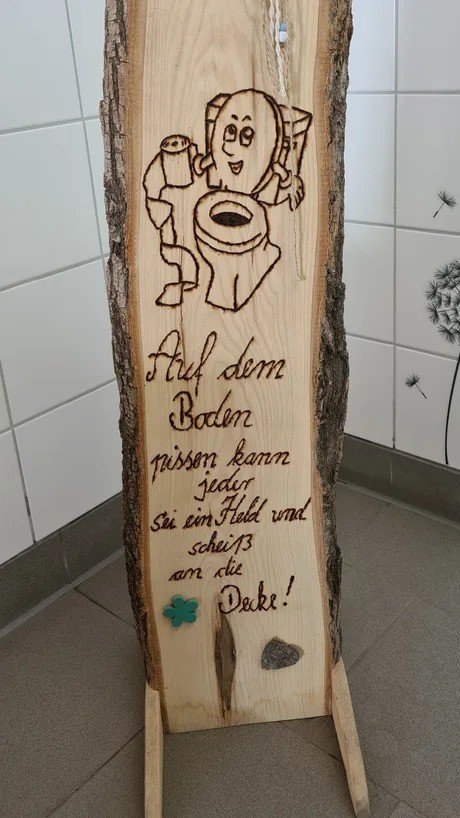 Auf dem
Boden
pissen kann
jeder
sei ein Held und
scheiß
an die
Decke!